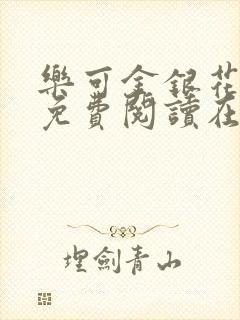 樂可金銀花
免費閱讀在
埋劍青山